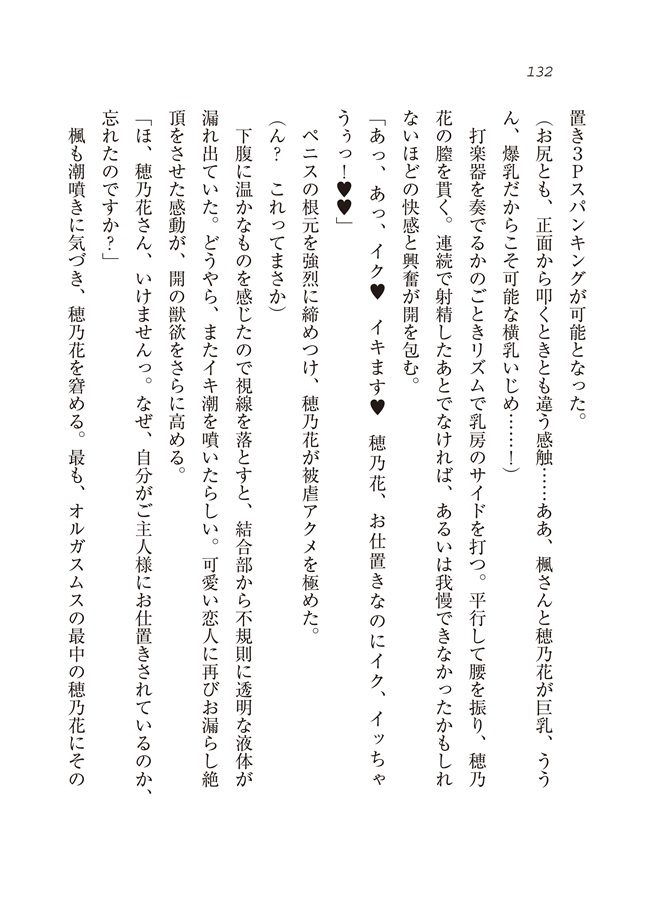 132
置き３Ｐスパンキングが可能となった。
（お尻とも、正面から叩くときとも違う感触……ああ、楓さんと穂乃花が巨乳、うう
ん、爆乳だからこそ可能な横乳いじめ……！）
打楽器を奏でるかのごときリズムで乳房のサイドを打つ。平行して腰を振り、穂乃
花の膣を貫く。連続で射精したあとでなければ、あるいは我慢できなかったかもしれ
ないほどの快感と興奮が開を包む。
「あっ、あっ、イク♥　イキます♥　穂乃花、お仕置きなのにイク、イッちゃ
うぅっ！♥♥」
ペニスの根元を強烈に締めつけ、穂乃花が被虐アクメを極めた。
（ん？　これってまさか）
下腹に温かなものを感じたので視線を落とすと、結合部から不規則に透明な液体が
漏れ出ていた。どうやら、またイキ潮を噴いたらしい。可愛い恋人に再びお漏らし絶
頂をさせた感動が、開の獣欲をさらに高める。
「ほ、穂乃花さん、いけませんっ。なぜ、自分がご主人様にお仕置きされているのか、
忘れたのですか？」
楓も潮噴きに気づき、穂乃花を窘める。最も、オルガスムスの最中の穂乃花にその